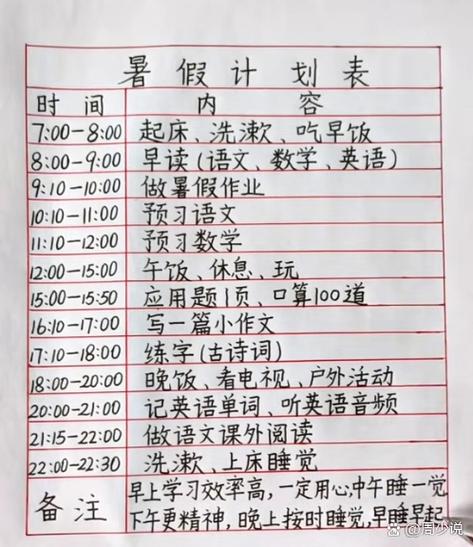 暑假计划表
时间 内容
7:00-8:00 起床、洗漱、吃早饭
8:00-9:00 早读(语文、数学、英语)
9:10-10:00 做暑假作业
10:10-11:00 预习语文
11:10-12:00 预习数学
12:00-15:00 午饭、休息、玩
15:00-15:50 应用题1页、口算100道
16:10-17:00 写一篇小作文
17:10-18:00 练字(古诗词)
18:00-20:00 晚饭、看电视、户外活动
20:00-21:00 记英语单词、听英语音频
21:15-22:00 做语文课外阅读
22:00-22:30 洗漱、上床睡觉
备注 早上学习效率高,一定用心,中午睡一觉
下午更精神,晚上按时睡觉,早睡早起
@周少说